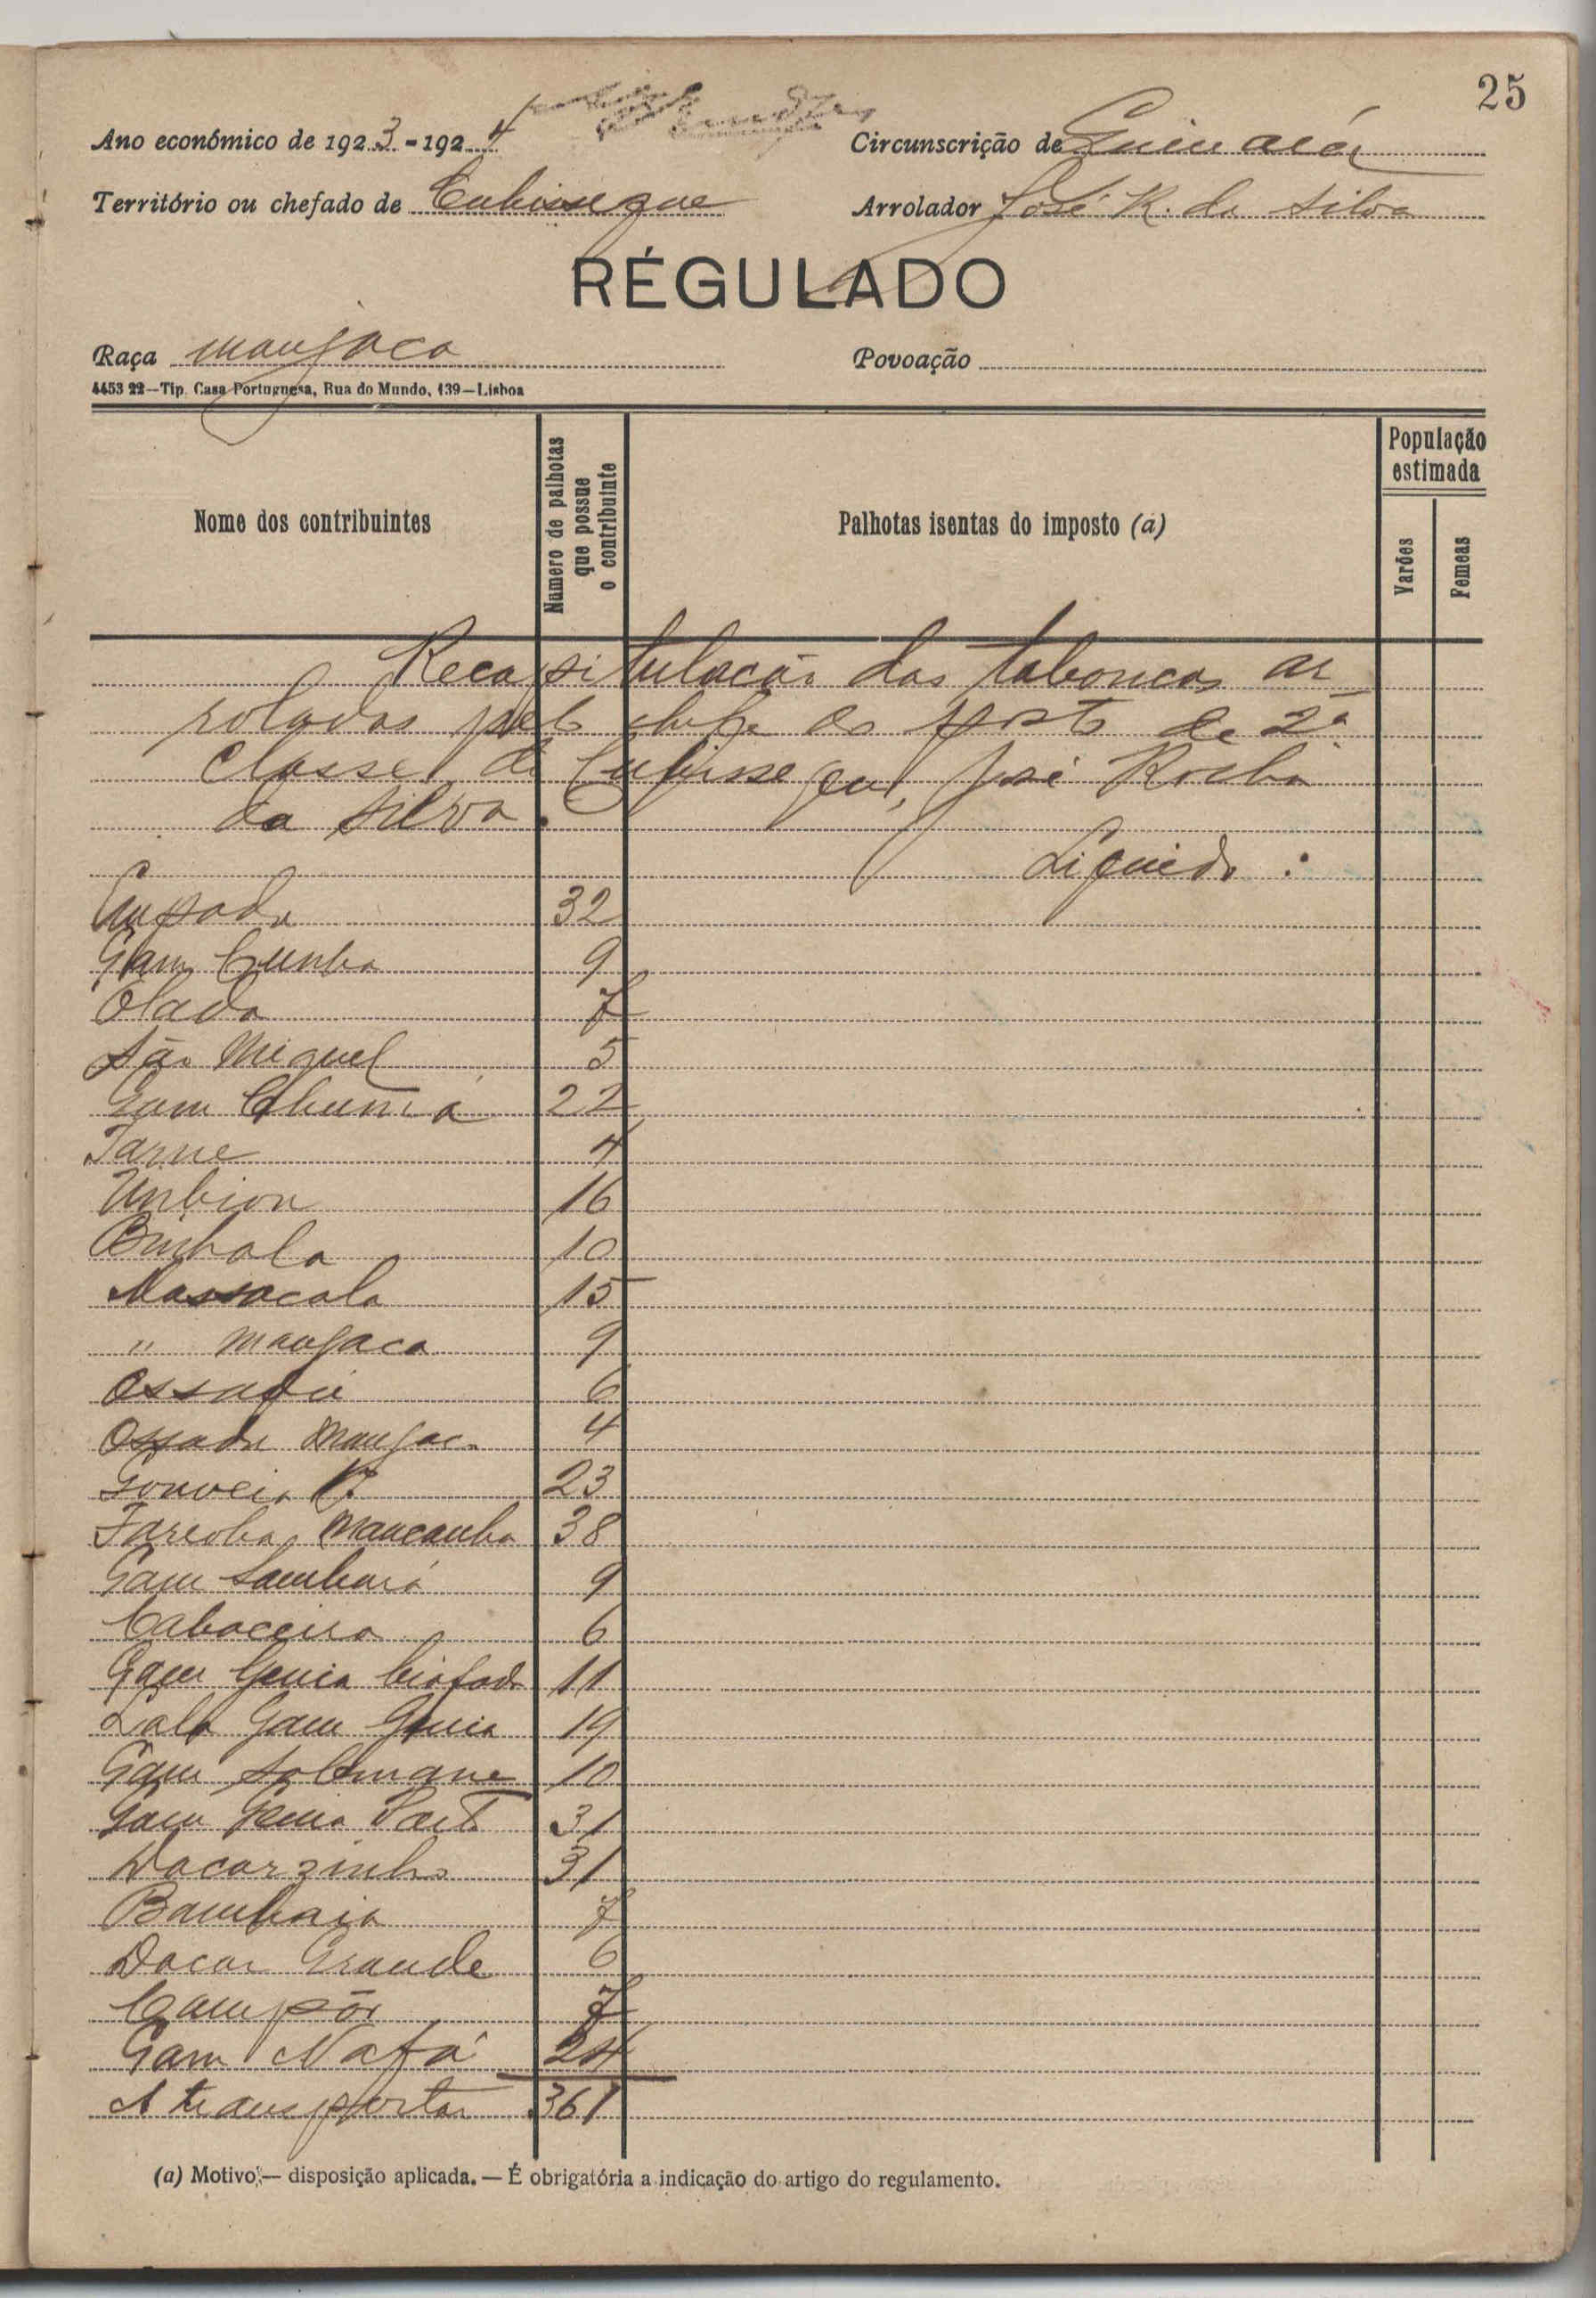 25
Ano económico de 1923-1924
Circunscrição de
Território ou chefado de Cubisseque
Arrolador José R. da Silva
RÉGULADO
Raça manjaca
Povoação
4453 22—Tip. Casa Portuguesa, Rua do Mundo, 139—Lisboa
Nome dos contribuintes
Numero de palhotas que possue o contribuinte
Palhotas isentas do imposto (a)
População estimada
Varões
Femeas
Recapitulacão das tabancas ar
roladas pelo chefe do posto de 2ª
classe de Cubisseque, José Rocha
da Silva.
Liquido :
Empada 32
Gam Cunha 9
Olada 7
São Miguel 5
Gam Chumá 22
Darne 4
Unbion 16
Buhala 10
Massacala 15
" manjaca 9
6
Ossada Manjaca 4
Gouveia 23
Farcoba Mancanha 38
Gam Sambará 9
Cabaceira 6
Gam Genia biafada 11
Lala Gam Genia 19
Gam Solemane 10
Gam Genia Porto 31
Dacarzinho 31
Bambaia 7
Dacar Grande 6
Campôr 7
Gam Nafá 24
A transportar 361
(a) Motivo,— disposição aplicada. — É obrigatória a indicação do artigo do regulamento.